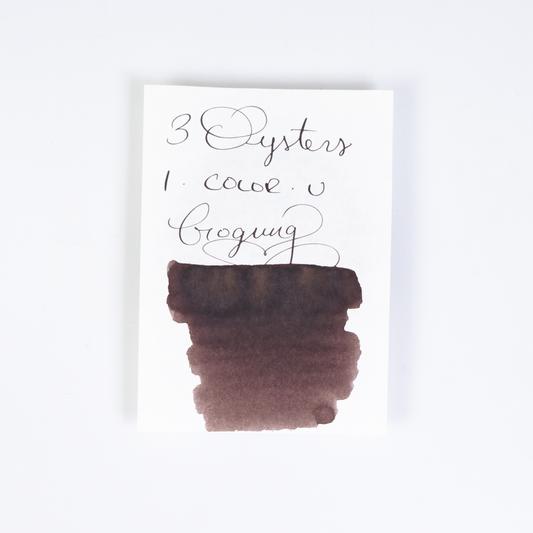 3 Oysters
I . COLOR . U
Grogung